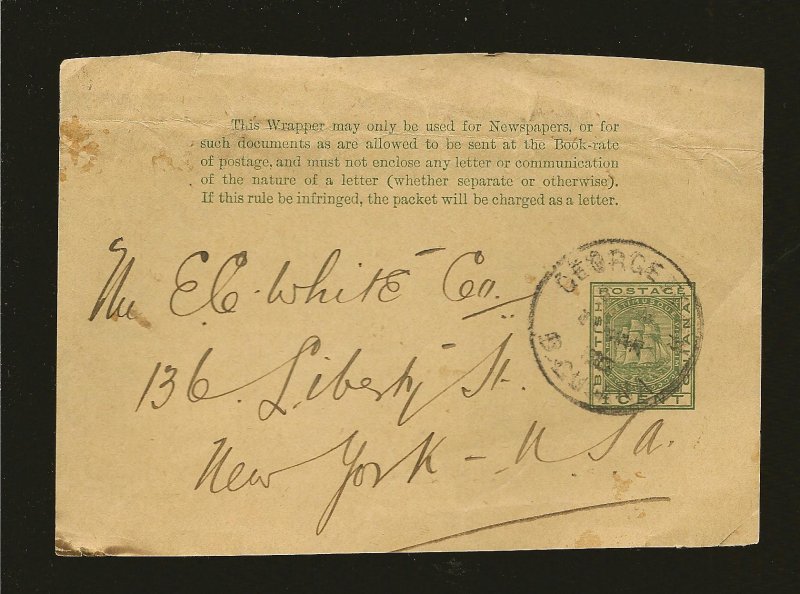 This Wrapper may only be used for Newspapers, or for
such documents as are allowed to be sent at the Book-rate
of postage, and must not enclose any letter or communication
of the nature of a letter (whether separate or otherwise).
If this rule be infringed, the packet will be charged as a letter.
The E.C. White Co.
136 Liberty St.
New York - U.S.a.
GEORGE
POSTAGE
BRITISH
GUIANA
1 CENT